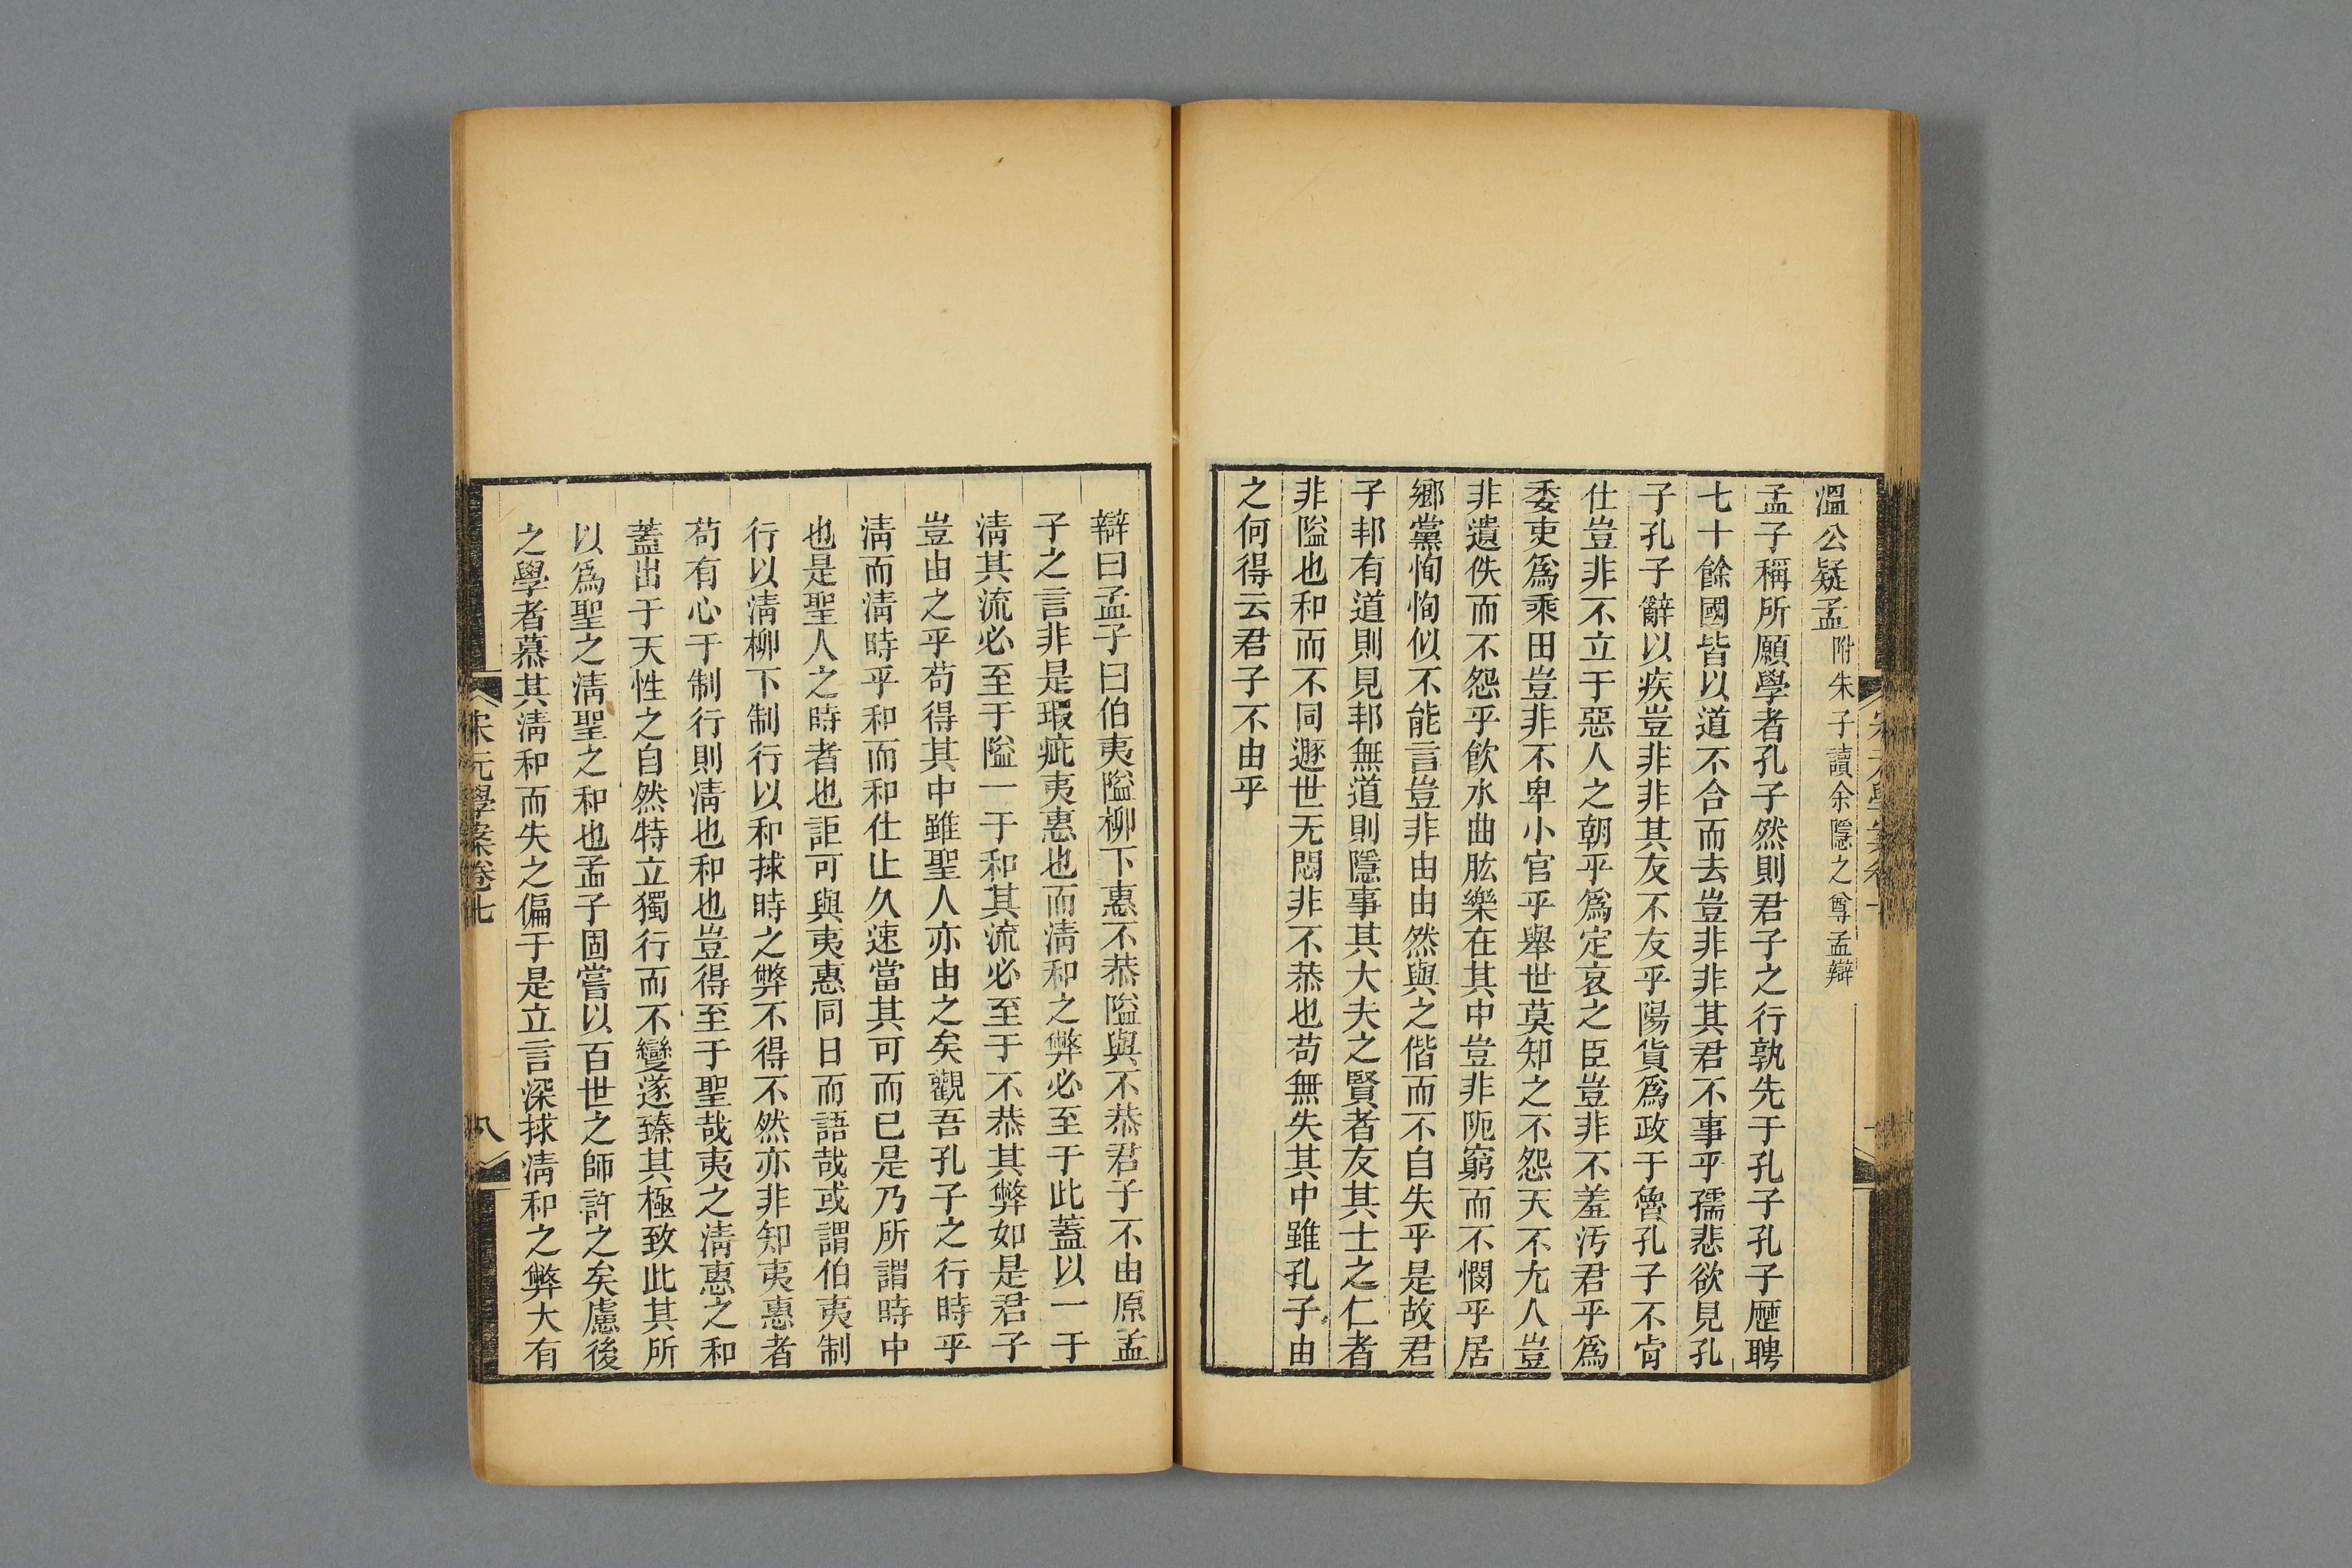 溫公疑孟附朱子讀余隱之尊孟辯
孟子稱所願學者孔子然則君子之行孰先于孔子孔子歷聘
七十餘國皆以道不合而去豈非非其君不事乎孺悲欲見孔
子孔子辭以疾豈非非其友不友乎陽貨爲政于魯孔子不肯
仕豈非不立于惡人之朝乎爲定哀之臣豈非不羞汚君乎爲
委吏爲乘田豈非不卑小官乎舉世莫知之不怨天不尤人豈
非遺佚而不怨乎飮水曲肱樂在其中豈非阨窮而不憫乎居
鄉黨恂恂似不能言豈非由由然與之偕而不自失乎是故君
子邦有道則見邦無道則隱事其大夫之賢者友其士之仁者
非隘也和而不同遯世无悶非不恭也苟無失其中雖孔子由
之何得云君子不由乎
辯曰孟子曰伯夷隘柳下惠不恭隘與不恭君子不由原孟
子之言非是瑕疵夷惠也而淸和之弊必至于此蓋以一于
淸其流必至于隘一于和其流必至于不恭其弊如是君子
豈由之乎苟得其中雖聖人亦由之矣觀吾孔子之行時乎
淸而淸時乎和而和仕止久速當其可而已是乃所謂時中
也是聖人之時者也詎可與夷惠同日而語哉或謂伯夷制
行以淸柳下制行以和捄時之弊不得不然亦非知夷惠者
苟有心于制行則淸也和也豈得至于聖哉夷之淸惠之和
蓋出于天性之自然特立獨行而不變遂臻其極致此其所
以爲聖之淸聖之和也孟子固嘗以百世之師許之矣慮後
之學者慕其淸和而失之偏于是立言深捄淸和之弊大有
宋元學案卷七
八